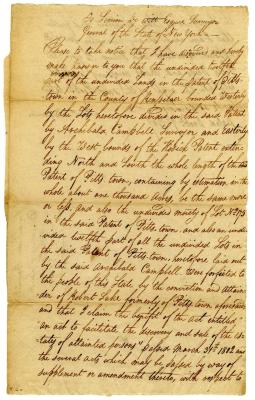 To Simeon De Witt Esquire Surveyor
General of the State of New York
Please to take notice that I have discovered and hereby
make known to you that the undivided twelfth
part of the undivided lands in the Patent of Pitts
town in the County of Rensselaer bounded Westerly
by the Lots heretofore divided in the said Patent
by Archibald Campbell Surveyor and easterly
by the West bounds of the Hosick Patent exten
ding North and South the whole length of the said
Patent of Pitts town, containing by estimation in the
whole about one thousand Acres, be the same more
or less, and also the undivided moiety of Lot No. 193
in the said Patent of Pitts town, and also an undi
vided twelfth part of all the undivided Lots in
the said Patent of Pitts-town, heretofore laid out
by the said Archibald Campbell have forfeited to
the people of this State, by the conviction and Attain
der of Robert Lake formerly of Pitts town aforesaid
and that I claim the benefit of the act entitled
an act to facilitate the discovery and sale of the es
tates of attainted persons passed March 31st 1802 and
the several acts which may be passed by way of
supplement or amendment thereto, with respect to